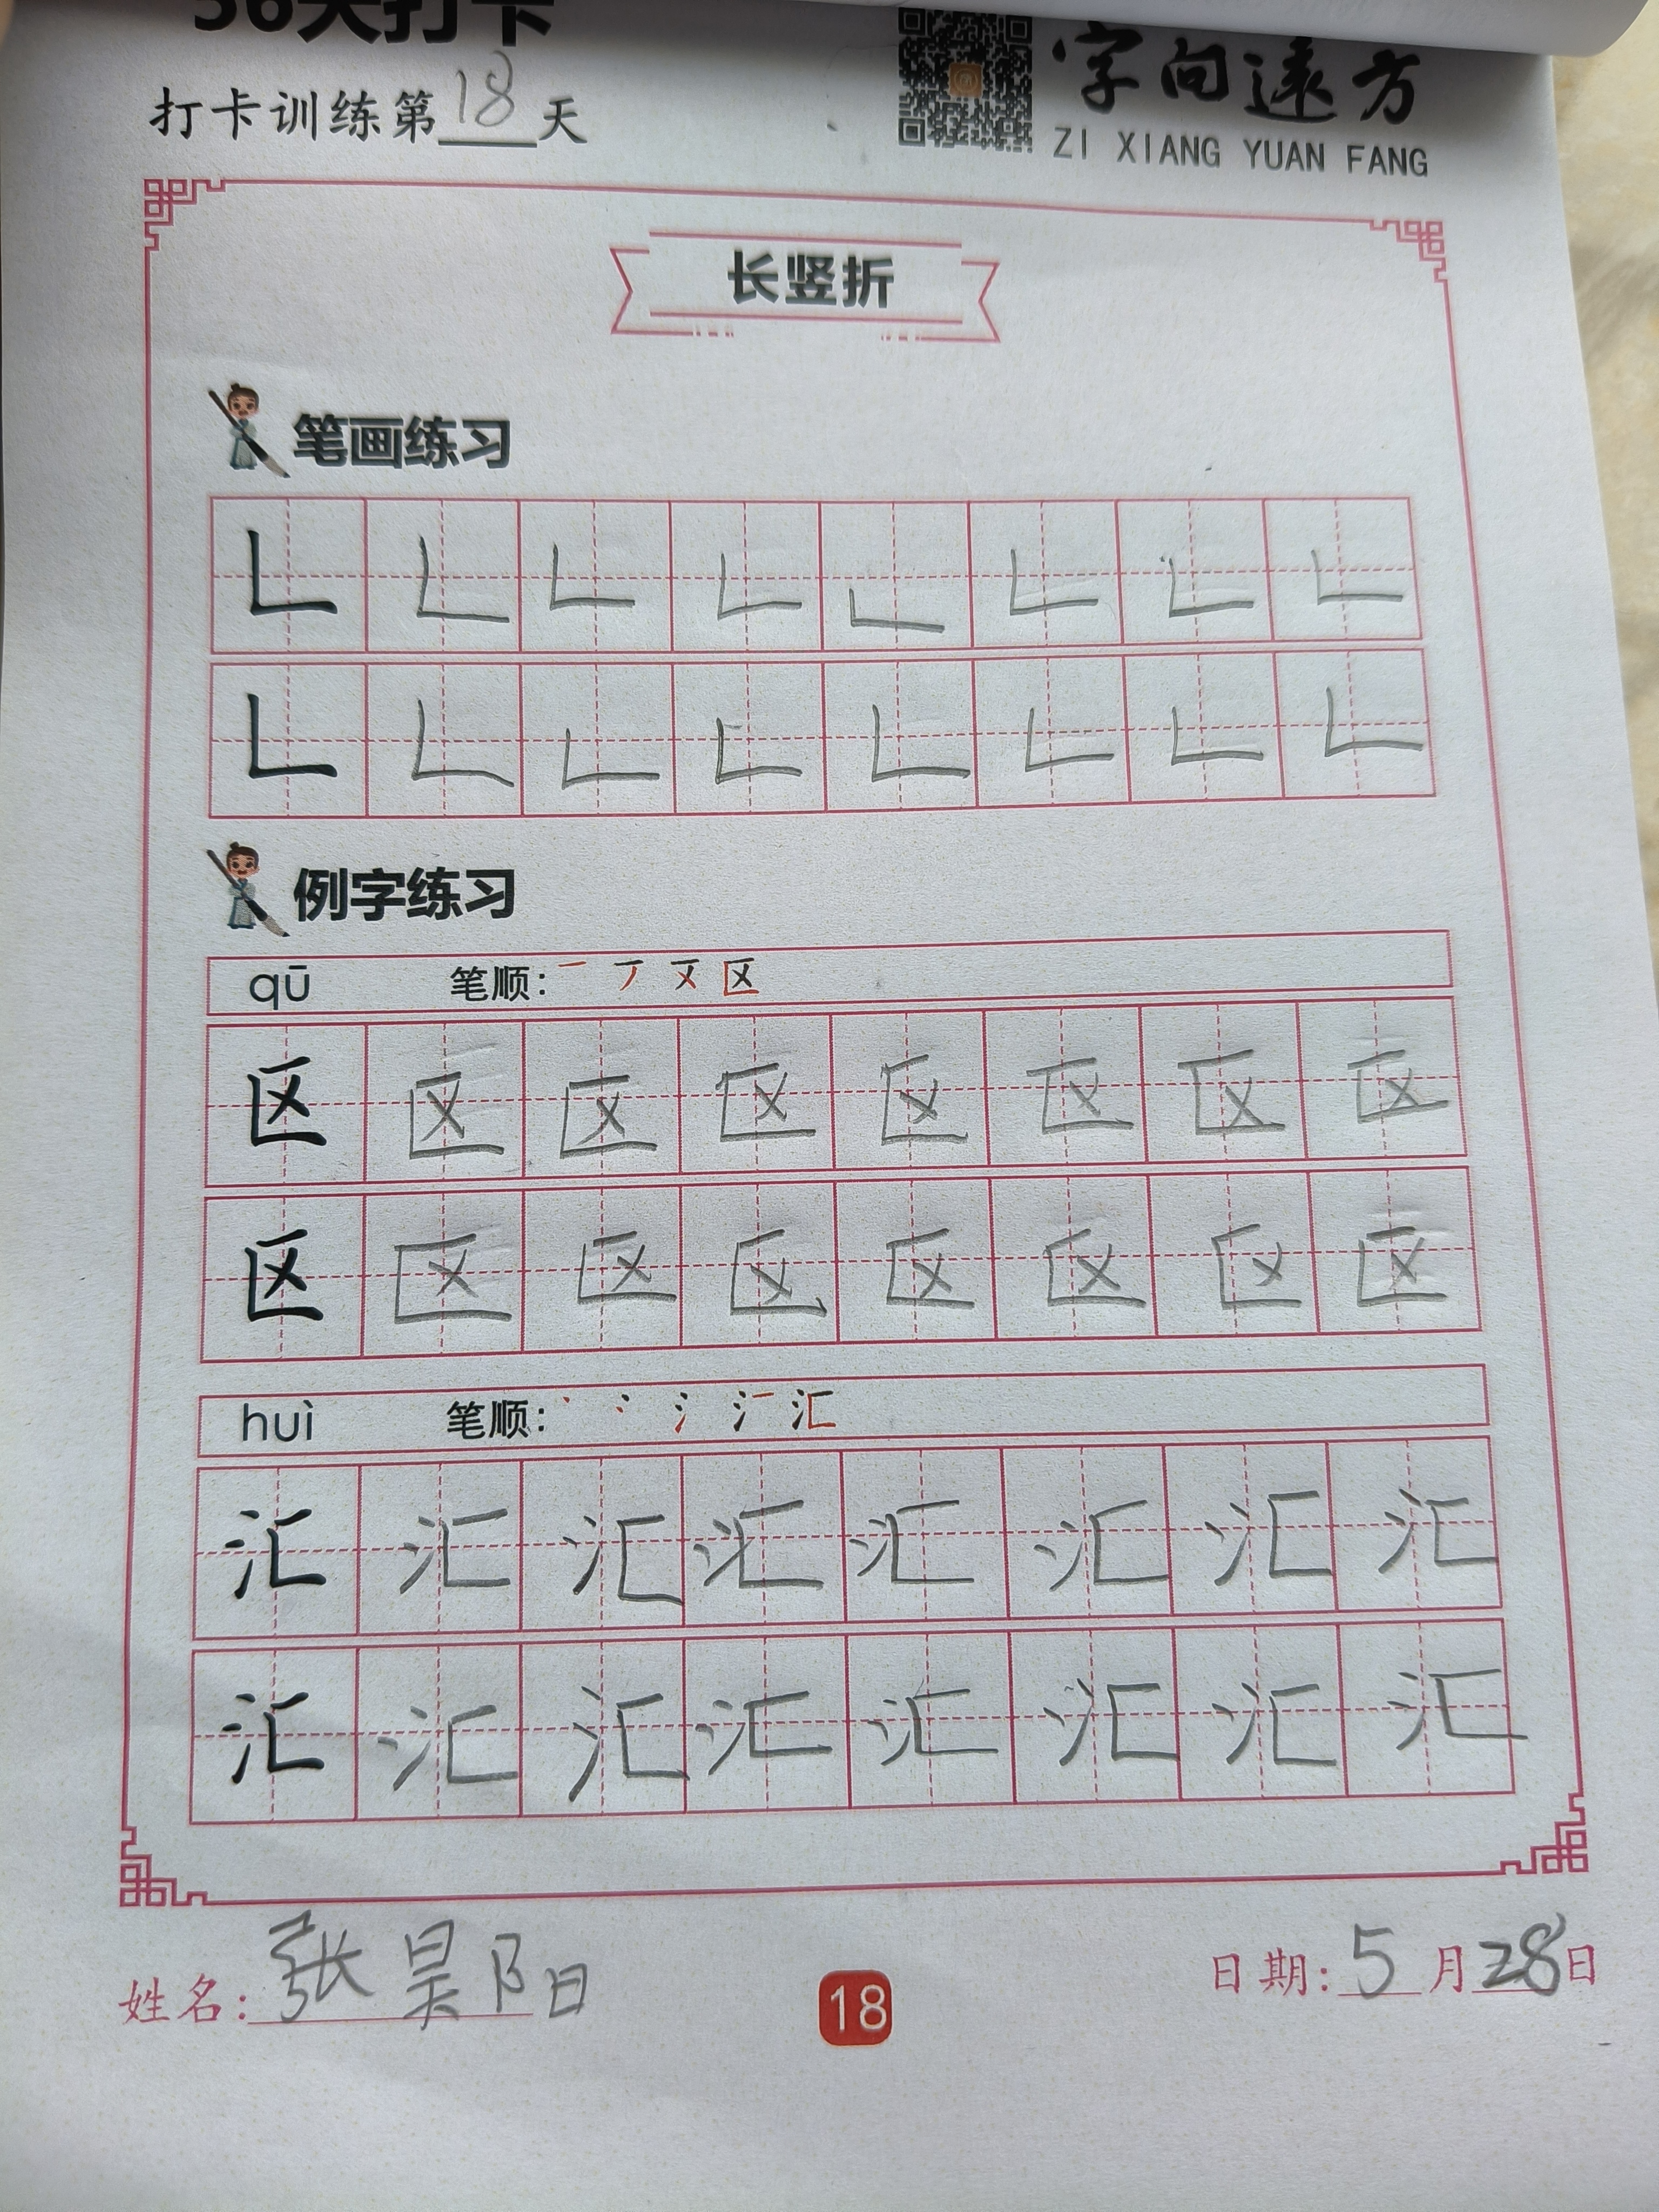 36天打卡
打卡训练第18天
字向遠方
ZI XIANG YUAN FANG
长竖折
笔画练习
例字练习
qū 笔顺: 区
区 区 区 区 区 区 区 区
区 区 区 区 区 区 区 区
huì 笔顺: 汇
汇 汇 汇 汇 汇 汇 汇 汇
汇 汇 汇 汇 汇 汇 汇 汇
姓名: 张昊阳
18
日期: 5月28日